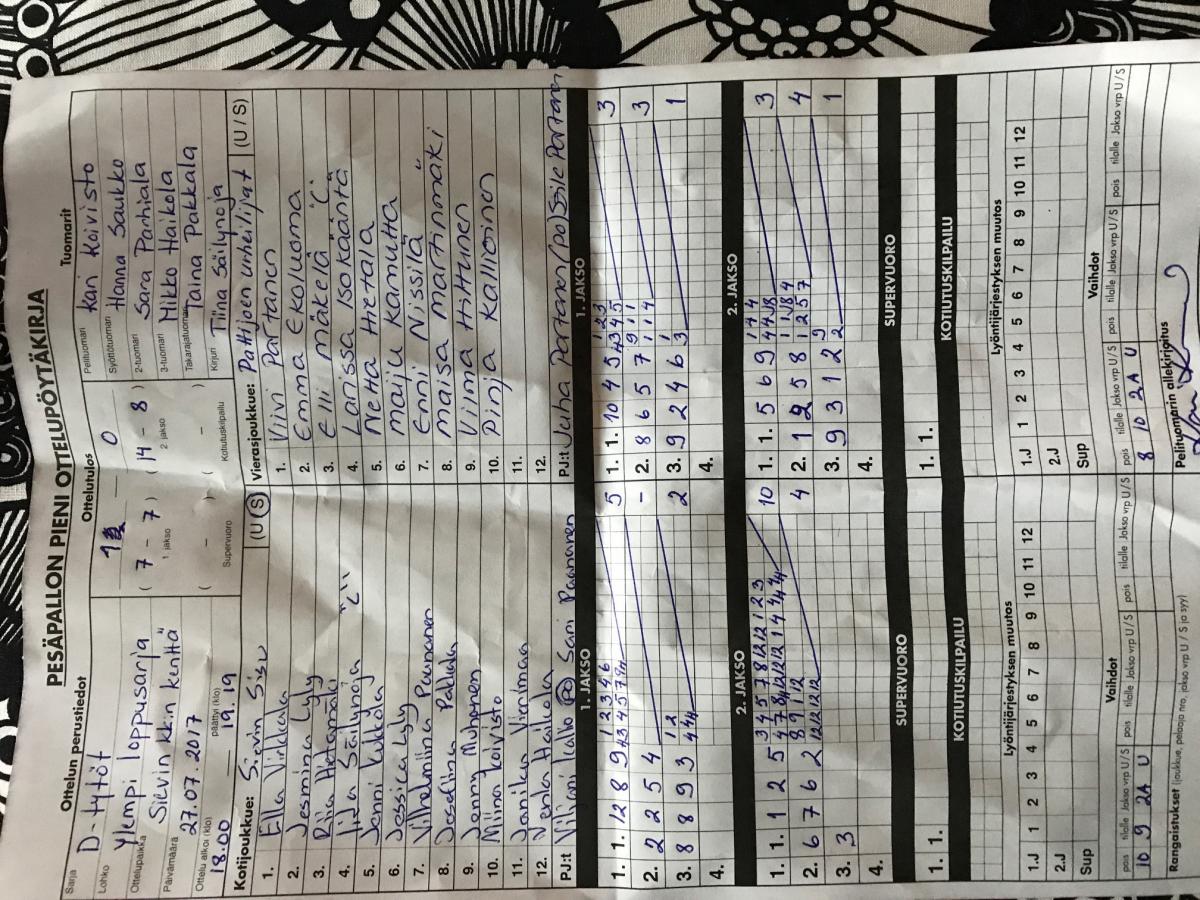 PESÄPALLON PIENI OTTELUPÖYTÄKIRJA
Ottelun perustiedot
Sarja D-tytöt
Lohko Ylempi loppusarja
Ottelupaikka Sievin kk:n kenttä
Päivämäärä 27.07.2017
Ottelu alkoi (klo) 18.00 päättyi (klo) 19.19
Ottelutulos
0
( 7 - 7 ) ( 14 - 8 )
1. jakso 2. jakso
( - ) ( - )
Supervuoro Kotiutuskilpailu
Tuomarit
Pelituomari Kari Koivisto
Syöttötuomari Hanna Saukko
2-tuomari Sara Parhiala
3-tuomari Mikko Haikola
Takarajatuomari Taina Pakkala
Kirjuri Tiina Säilynoja
Kotijoukkue: Sievin Sisu (U / S)
1. Ella Virkkala
2. Jesmina Lyly
3. Riia Hietamäki
4. Iida Säilynoja "L"
5. Jenni Lukkola
6. Jessica Lyly
7. Vilhelmiina Paananen
8. Josefiina Pakkala
9. Jenny Muhonen
10. Miina Koivisto
11. Janika
12. Venla Haikola
PJ:t Sari Paananen
Vierasjoukkue: Pattijoen urheilijat (U / S)
1. Viivi Partanen
2. Emma Ekoluoma
3. Elli Mäkelä "L"
4. Larissa Isokääntä
5. Netta Hietala
6. Maiju Kamutta
7. Enni Nissilä
8. Maisa Martinmäki
9. Vilma Hittunen
10. Pinja Kallioinen
11.
12.
PJ:t Juha Partanen (po) Sile Partanen
1. JAKSO
1. 1. 12 8 9 5
2. 2 2 5 4 -
3. 8 8 9 3 2
4.
1. JAKSO
1. 1. 10 4 5 3
2. 8 6 5 7 3
3. 9 2 4 6 1
4.
2. JAKSO
1. 1. 1 2 5 10
2. 6 7 6 2 4
3. 3
4.
2. JAKSO
1. 1. 5 6 9 3
2. 1 2 5 8 4
3. 9 3 1 2 1
4.
SUPERVUORO
1. 1.
SUPERVUORO
1. 1.
KOTIUTUSKILPAILU
KOTIUTUSKILPAILU
Lyöntijärjestyksen muutos
1.J 1 2 3 4 5 6 7 8 9 10 11 12
2.J
Sup
Lyöntijärjestyksen muutos
1.J 1 2 3 4 5 6 7 8 9 10 11 12
2.J
Sup
Vaihdot
pois tilalle Jakso vrp U / S pois tilalle Jakso vrp U / S pois tilalle Jakso vrp U / S
10 9 2A U
Vaihdot
pois tilalle Jakso vrp U / S pois tilalle Jakso vrp U / S pois tilalle Jakso vrp U / S
8 10 2A U
Rangaistukset (joukkue, pelaaja nro, jakso vrp U / S ja syy)
Pelituomarin allekirjoitus